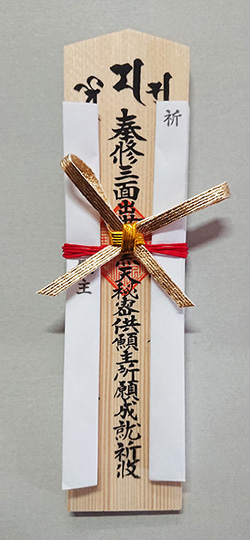 祈
奉修三面出世黒天秘密供願主所願成就祈攸
主